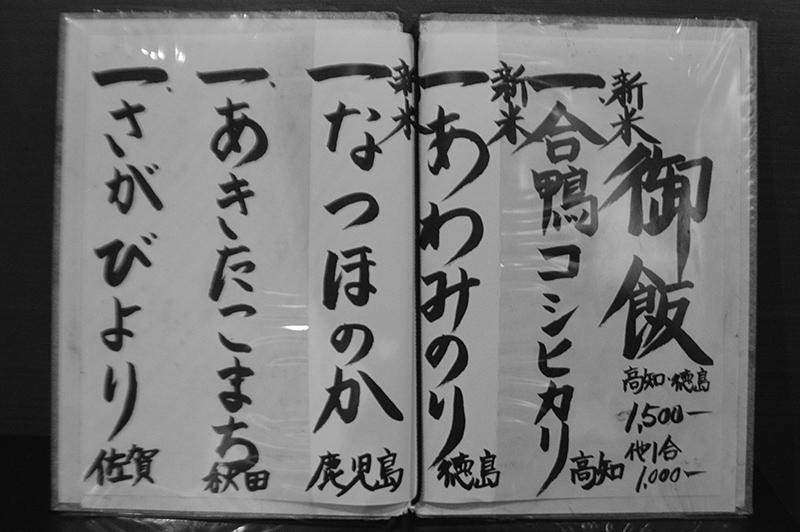 御飯
高知・徳島
1,500−
他1合
1,000−
新米
一、合鴨コシヒカリ 高知
新米
一あわみのり 徳島
新米
一なつほのか 鹿児島
一、あきたこまち 秋田
一、さがびより 佐賀